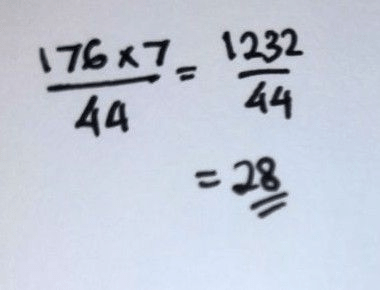 176 × 7 / 44 = 1232 / 44
= 28